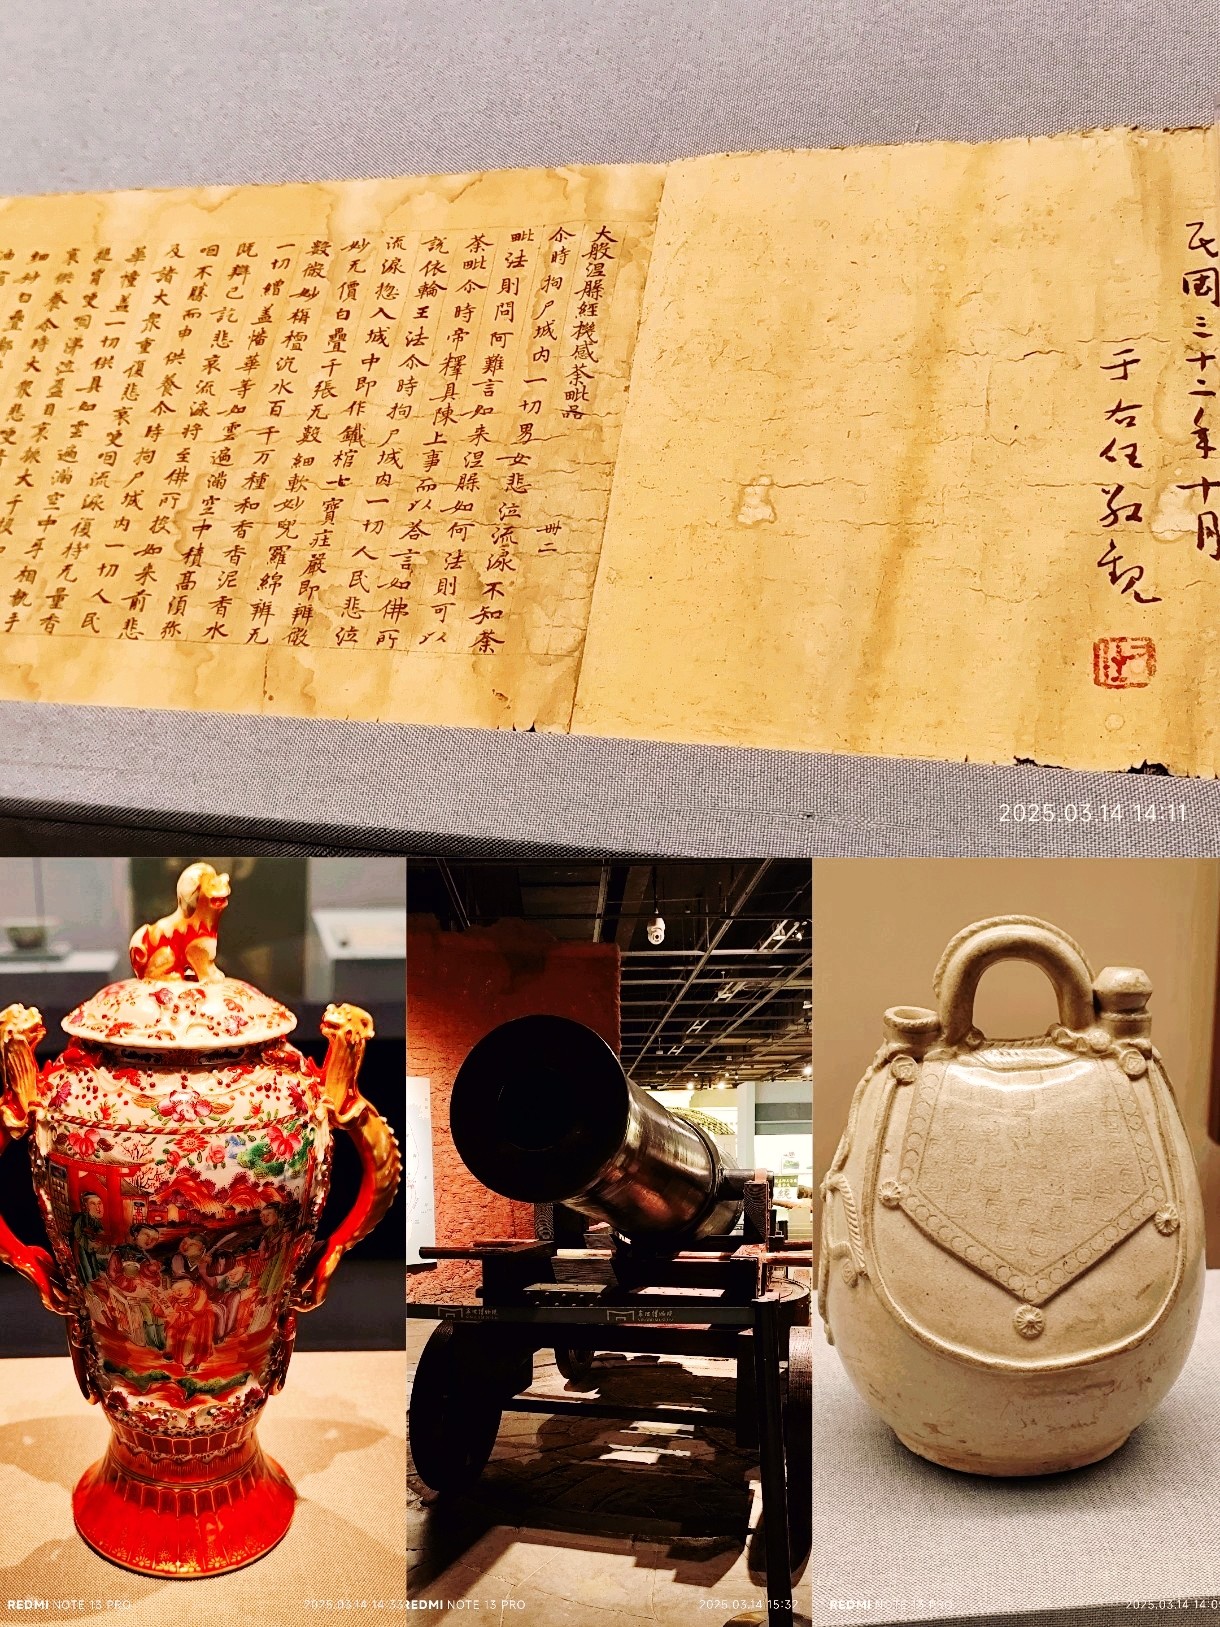 民国三十二年十月
于右任敬观
大般涅槃經機感荼毗品
尒時拘尸城内一切男女悲泣流淚不知荼
卌二
毗法則問阿難言如来涅槃如何法則可以
荼毗尒時帝釋具陳上事而以荅言如佛所
說依輪王法尒時拘尸城内一切人民悲泣
流淚惣入城中即作鐵棺七寳莊嚴即辦微
妙无價白疊千張无數細軟妙兜羅綿辦无
數微妙栴檀沉水百千万種和香香泥香水
一切繒盖幡華等如雲遍滿空中積高須弥
既辦已訖悲哀流淚将至佛所投如来前悲
咽不勝而申供養尒時拘尸城内一切人民
及諸大衆重復悲哀哽咽流淚復持无量香
華幢盖一切供具如雲遍滿空中互相執手
2025.03.14 14:11
REDMI NOTE 13 PRO
2025.03.14 14:33
REDMI NOTE 13 PRO
2025.03.14 15:32
REDMI NOTE 13 PRO
2025.03.14 14:0